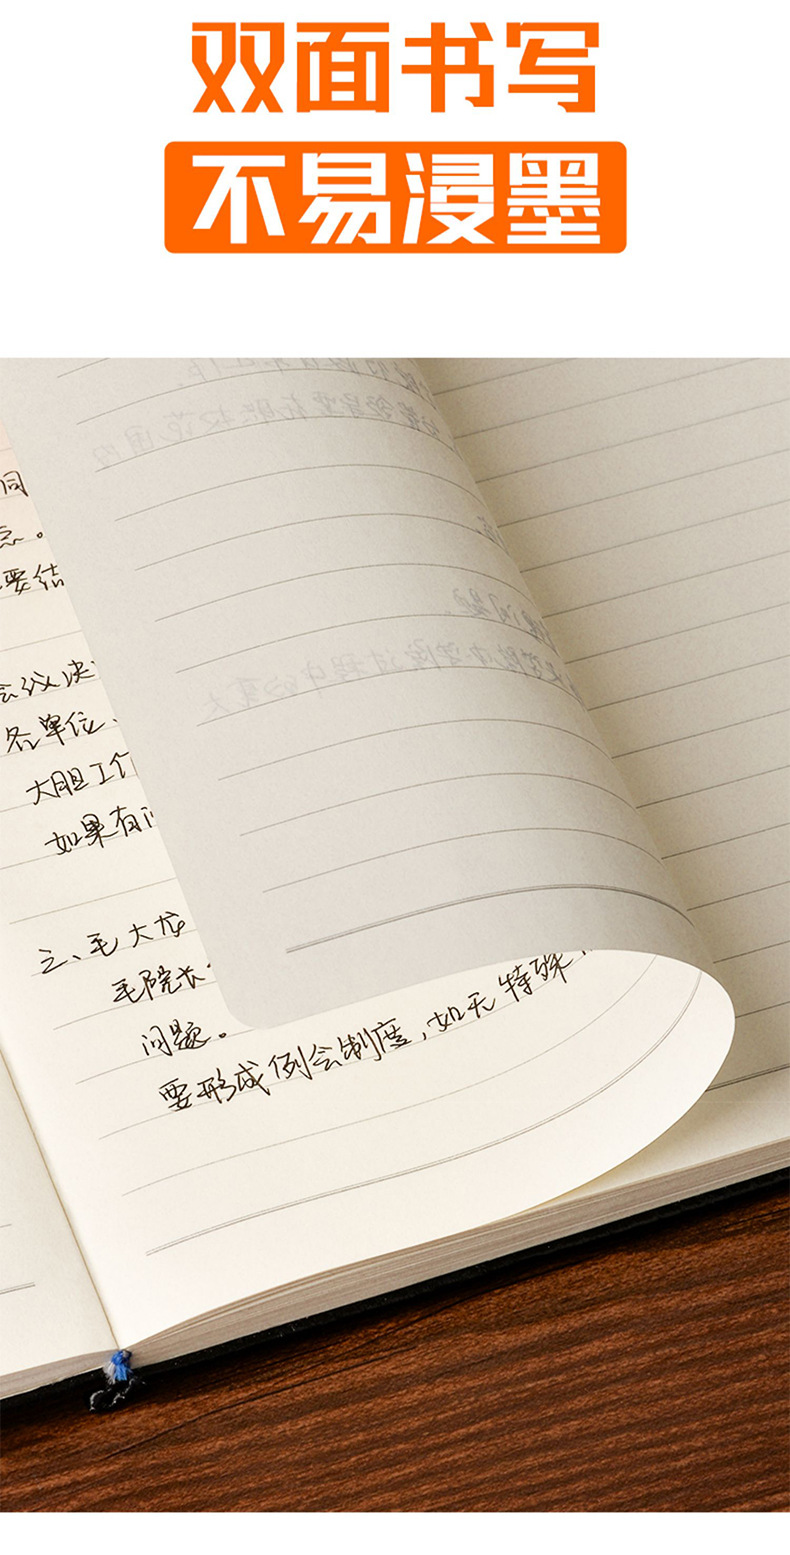 双面书写
不易浸墨
同
念。
要结
会议决
各单位、
大胆工作
如果有问
三、毛大龙
毛院长
问题。
要形成例会制度，如无特殊